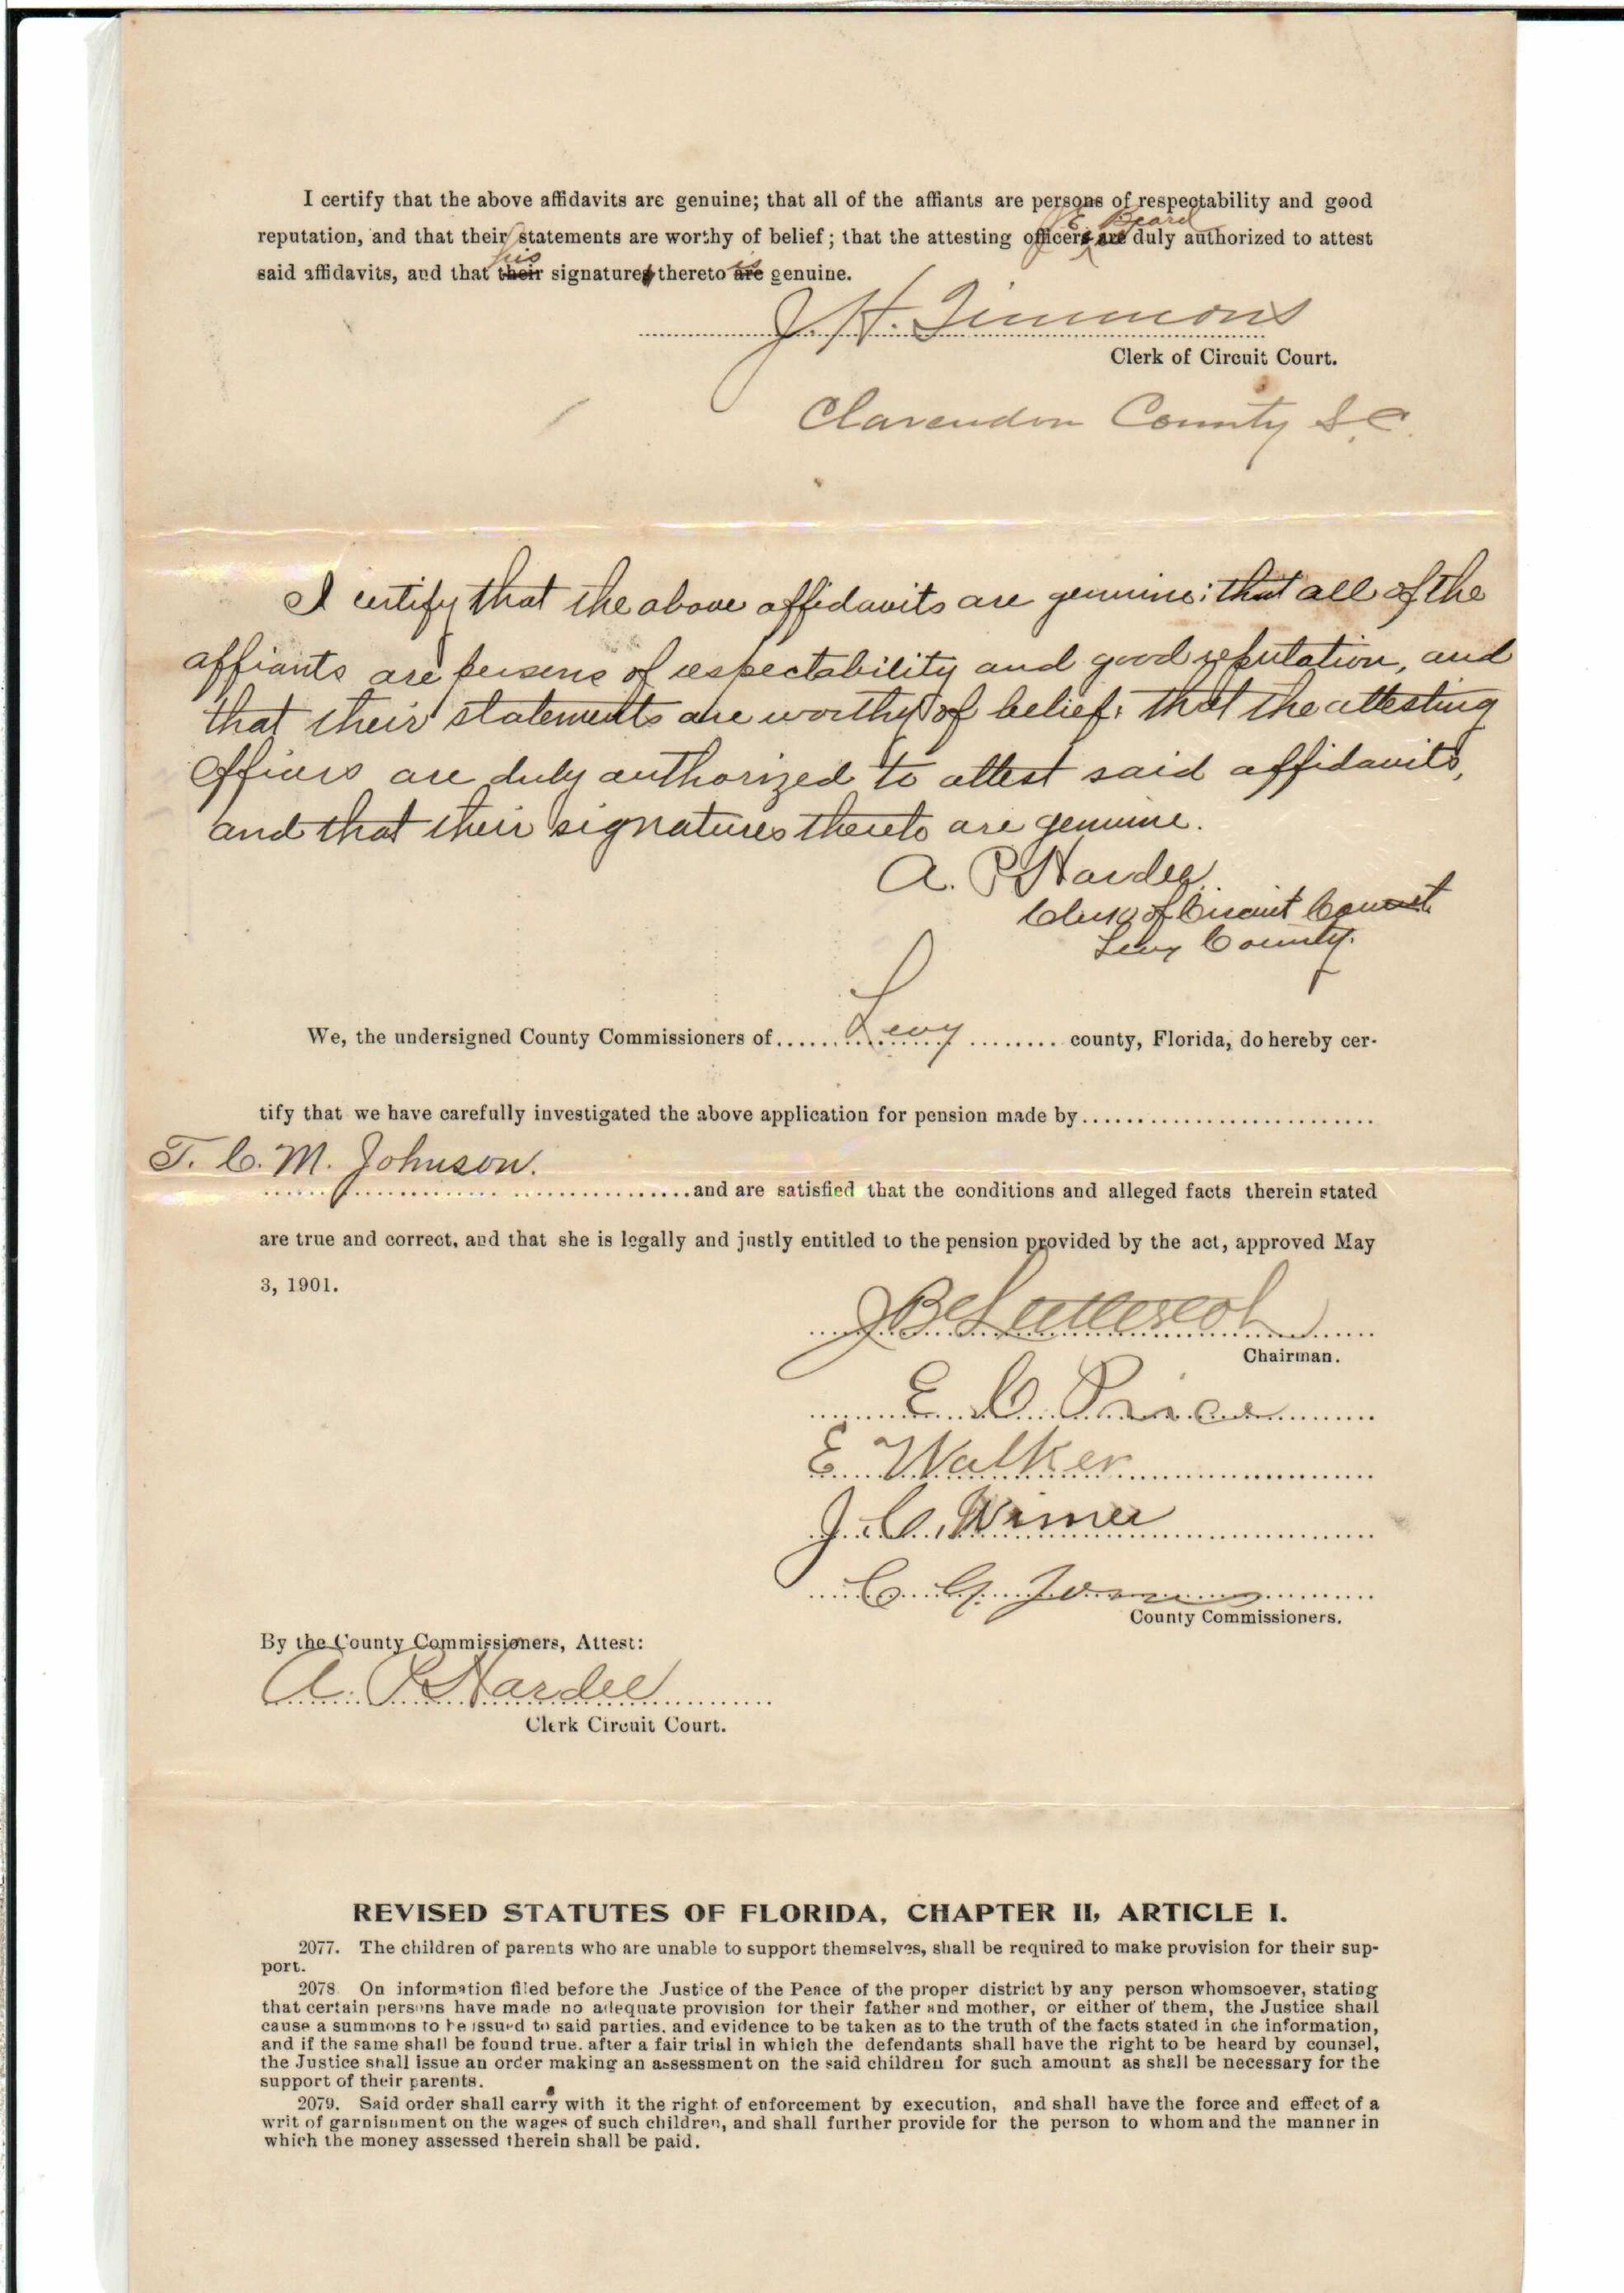 I certify that the above affidavits are genuine; that all of the affiants are persons of respectability and good
E Beard
reputation, and that their statements are worthy of belief; that the attesting officers are duly authorized to attest
his is
said affidavits, and that their signatures thereto are genuine.
J. H. Timmons
Clerk of Circuit Court.
Clarendon County S.C.
I certify that the above affidavits are genuine; that all of the
affiants are persons of respectability and good reputation, and
that their statements are worthy of belief; that the attesting
officers are duly authorized to attest said affidavits,
and that their signatures thereto are genuine.
A. P. Hardee.
Clerk of Circuit Court
Levy County.
We, the undersigned County Commissioners of Levy county, Florida, do hereby cer-
tify that we have carefully investigated the above application for pension made by
T. C. M. Johnson.
and are satisfied that the conditions and alleged facts therein stated
are true and correct, and that she is legally and justly entitled to the pension provided by the act, approved May
3, 1901.
Chairman.
E C Price
E Walker
J. C.
C G
County Commissioners.
By the County Commissioners, Attest:
A. P. Hardee
Clerk Circuit Court.
REVISED STATUTES OF FLORIDA, CHAPTER II, ARTICLE I.
2077. The children of parents who are unable to support themselves, shall be required to make provision for their sup-
port.
2078 On information filed before the Justice of the Peace of the proper district by any person whomsoever, stating
that certain persons have made no adequate provision for their father and mother, or either of them, the Justice shall
cause a summons to be issued to said parties. and evidence to be taken as to the truth of the facts stated in the information,
and if the same shall be found true. after a fair trial in which the defendants shall have the right to be heard by counsel,
the Justice shall issue an order making an assessment on the said children for such amount as shall be necessary for the
support of their parents.
2079. Said order shall carry with it the right of enforcement by execution, and shall have the force and effect of a
writ of garnishment on the wages of such children, and shall further provide for the person to whom and the manner in
which the money assessed therein shall be paid.